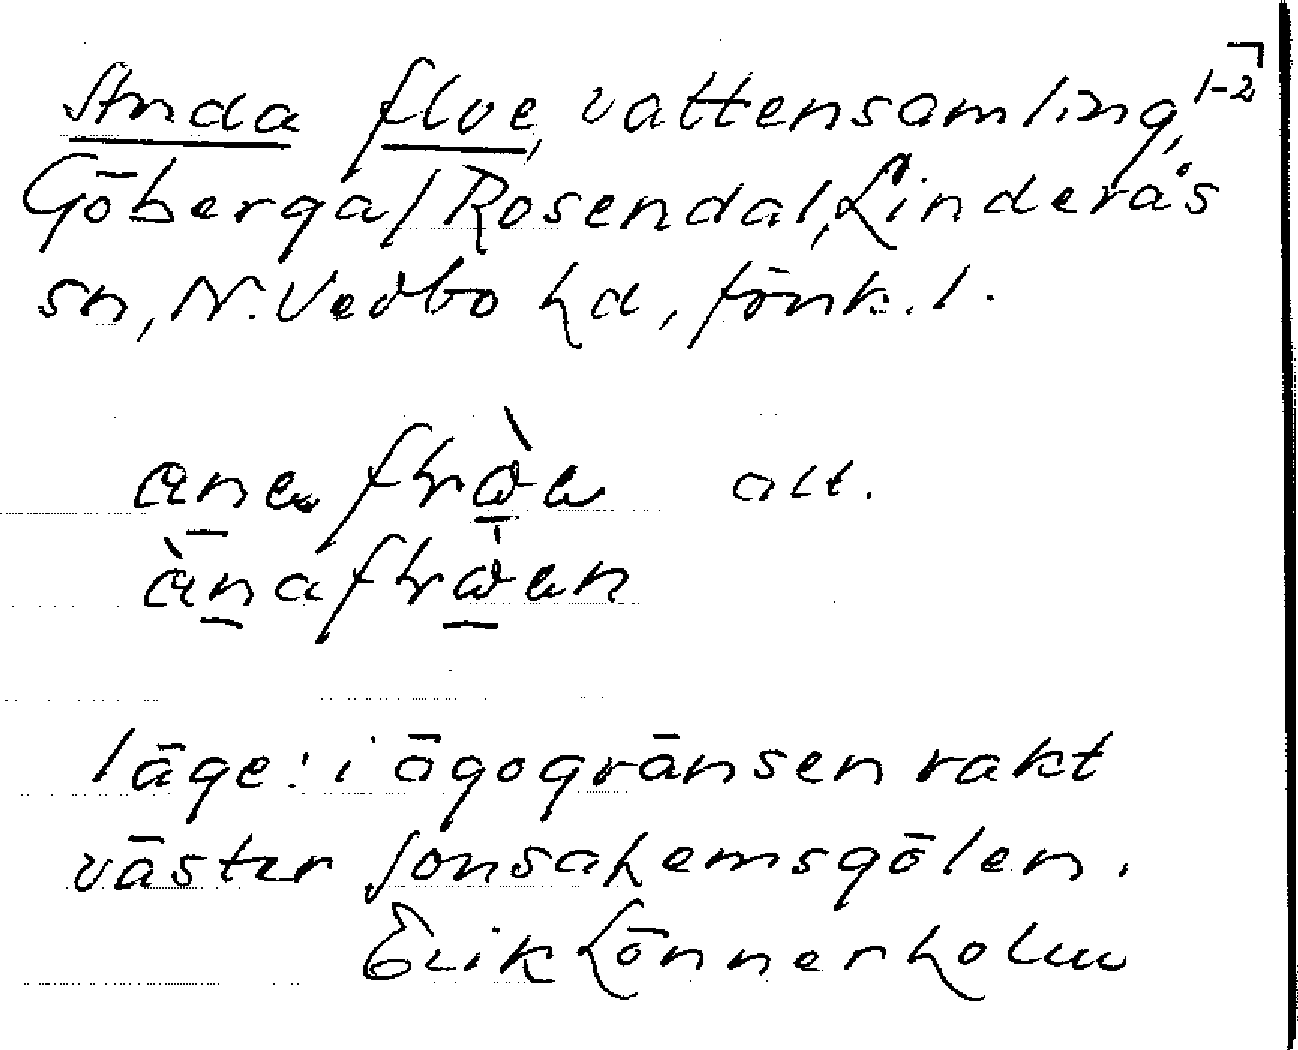 Anda floe, vattensamling, 1-2
Göberga/Rosendal, Linderås
sn, N. Vedbo hd, Jönk. l.
alt.
läge: i ägogränsen rakt
väster Jonsahemsgölen.
Erik Lönnerholm